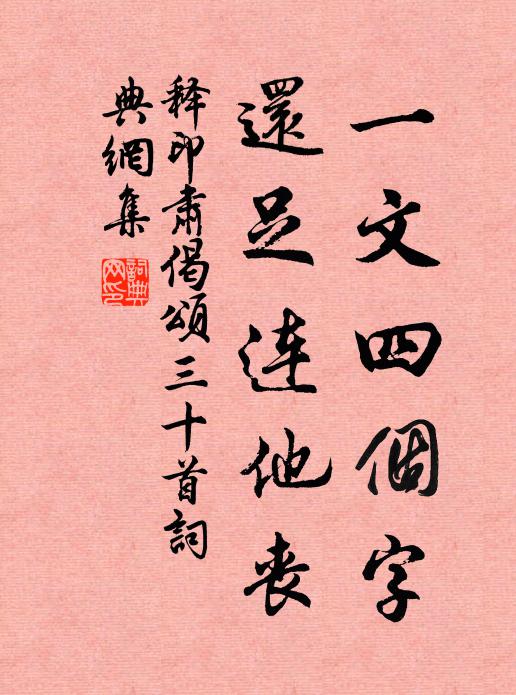 一文四個字
還足连他丧
释印肃偈頌三十首詞
典網集
詞典
网印